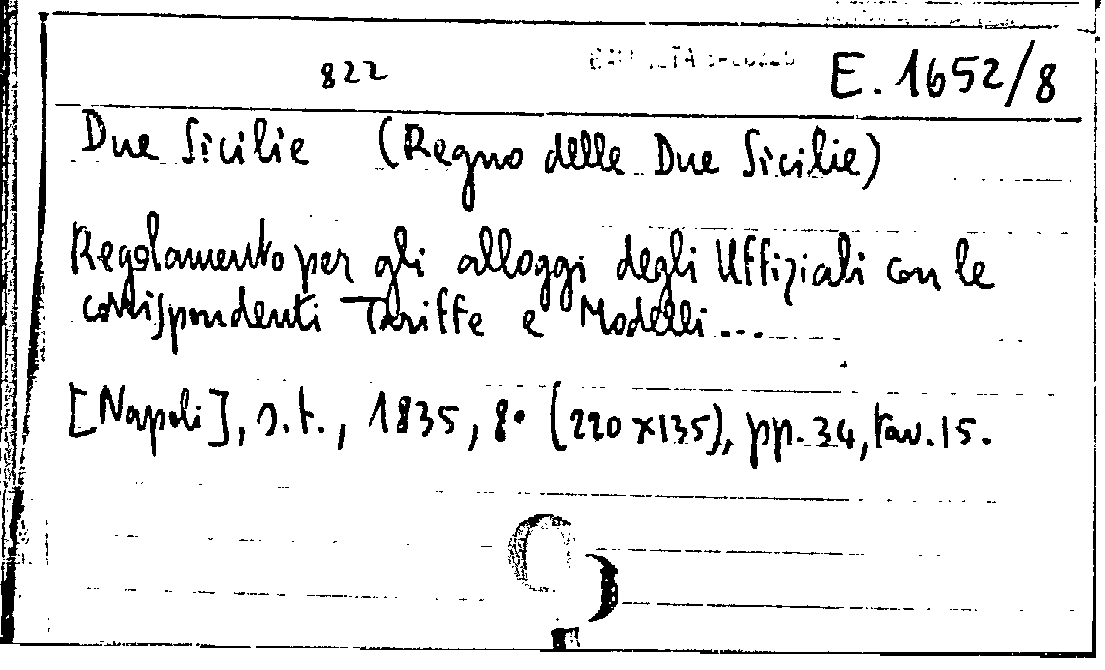 822 E. 1652/8
Due Sicilie (Regno delle Due Sicilie)
Regolamento per gli alloggi degli Uffiziali con le
corrispondenti Tariffe e Modelli...
[Napoli], s.t., 1835, 8° (220x135), pp. 34, tav. 15.